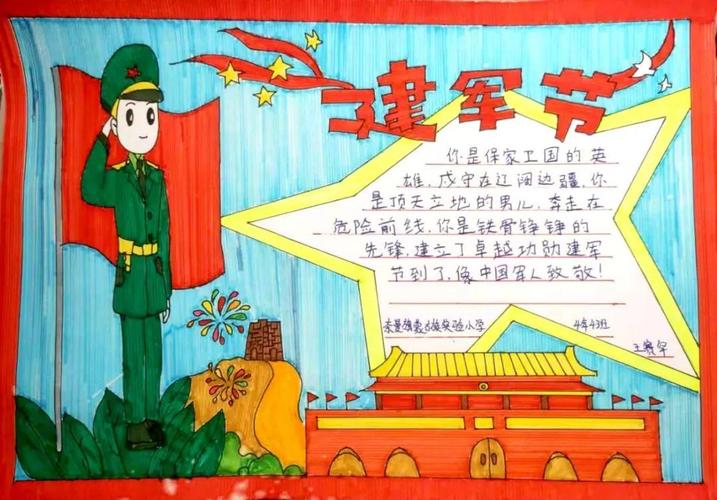 建军节
你是保家卫国的英
雄，戍守在辽阔边疆，你
是顶天立地的男儿，奔走在
危险前线，你是铁骨铮铮的
先锋，建立了卓越功勋建军
节到了，像中国军人致敬！
奈曼旗蒙古族实验小学 4年43班